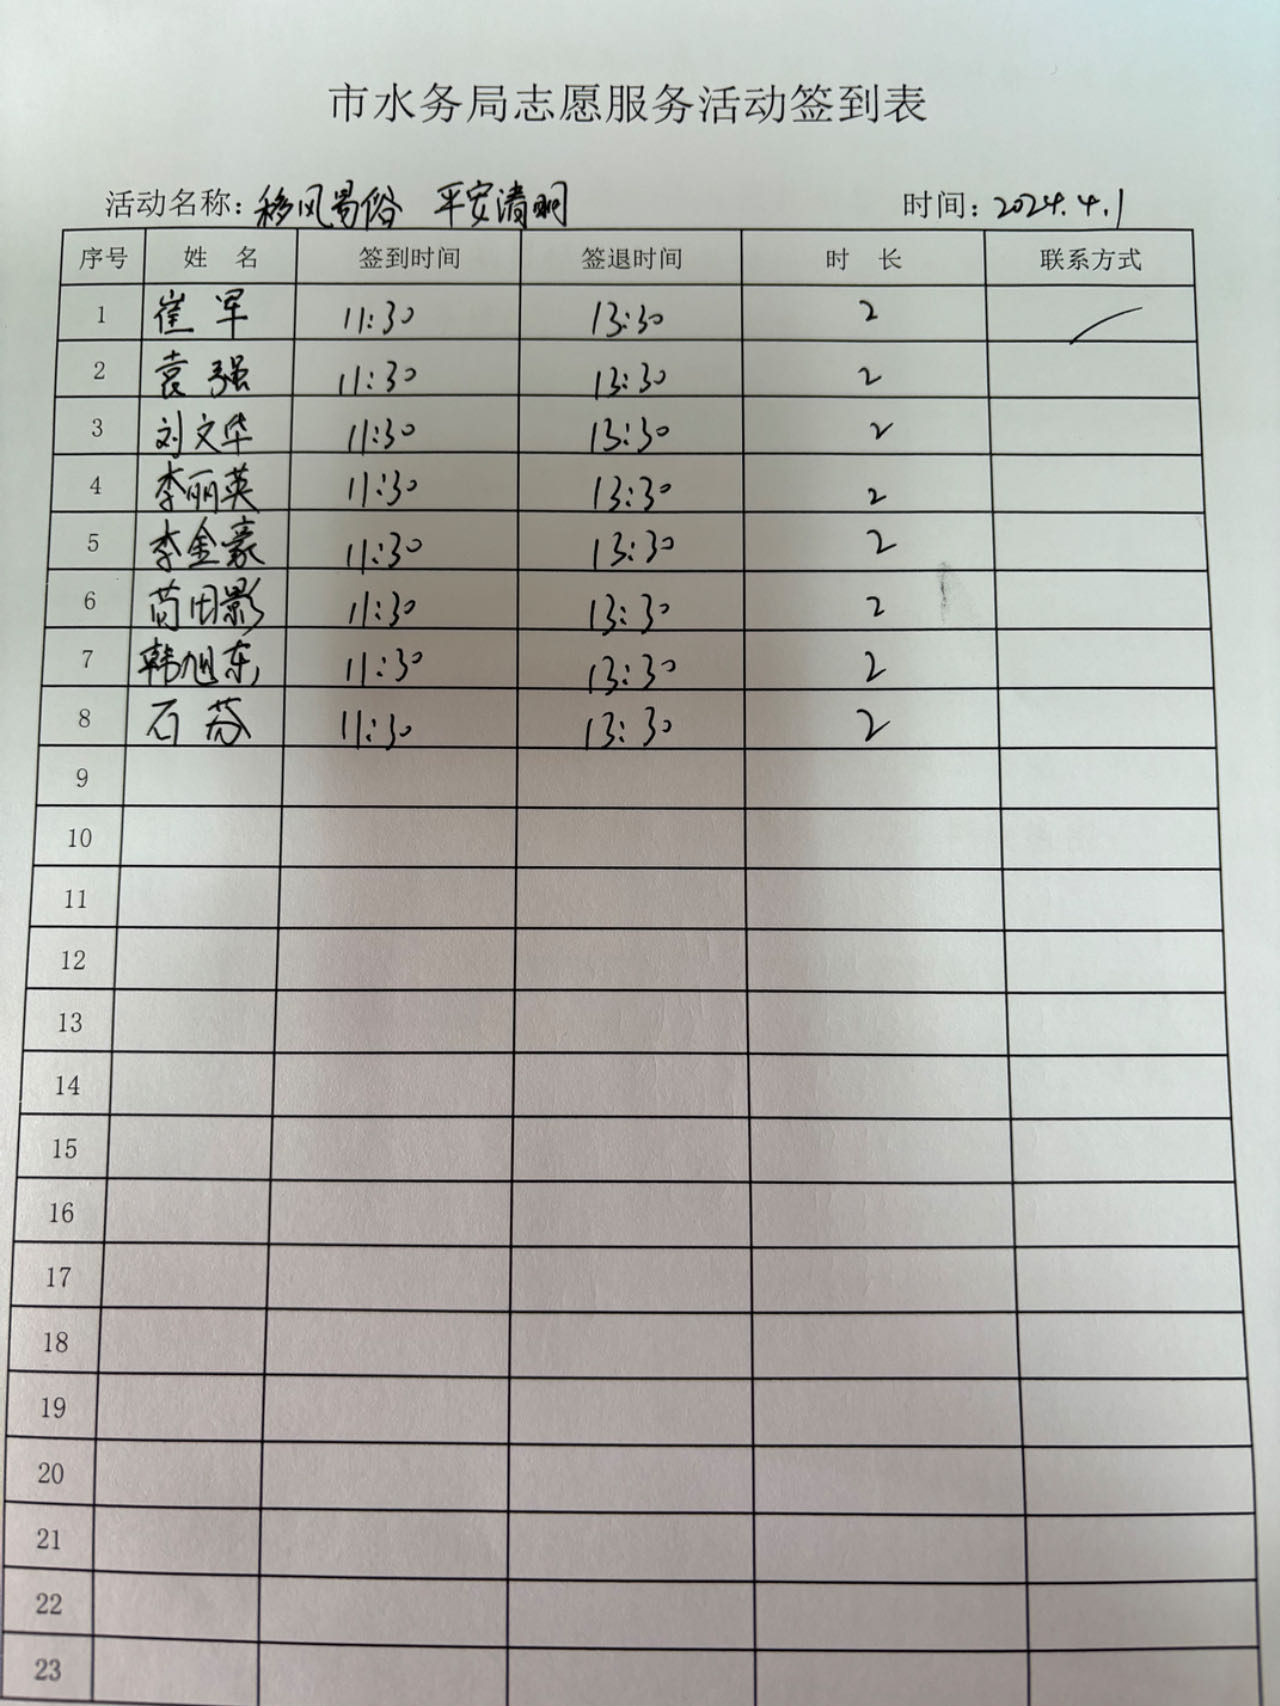 市水务局志愿服务活动签到表
活动名称：移风易俗 平安清明 时间：2024.4.1
序号 姓 名 签到时间 签退时间 时 长 联系方式
1 崔军 11:30 13:30 2
2 袁强 11:30 13:30 2
3 刘文华 11:30 13:30 2
4 李丽英 11:30 13:30 2
5 李金豪 11:30 13:30 2
6 苘田影 11:30 13:30 2
7 韩旭东 11:30 13:30 2
8 石芬 11:30 13:30 2
9
10
11
12
13
14
15
16
17
18
19
20
21
22
23